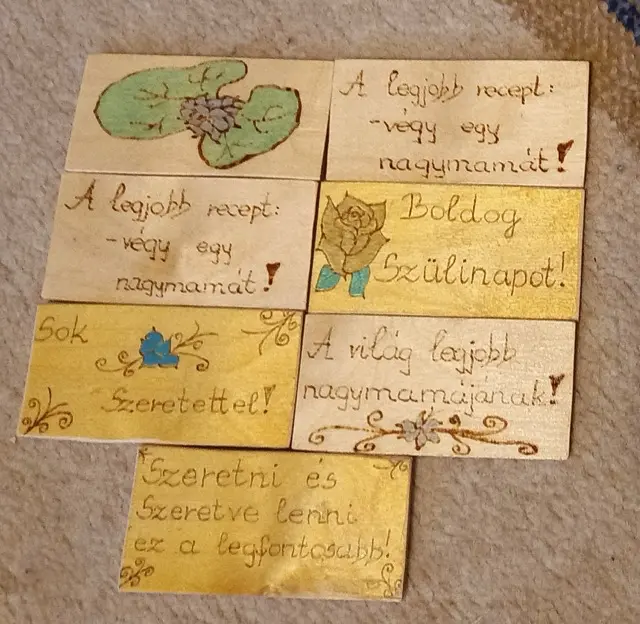 A legjobb recept:
-végy egy
nagymamát!
A legjobb recept:
-végy egy
nagymamát!
Boldog
Szülinapot!
Sok
Szeretettel!
A világ legjobb
nagymamájának!
Szeretni és
Szeretve lenni
ez a legfontosabb!